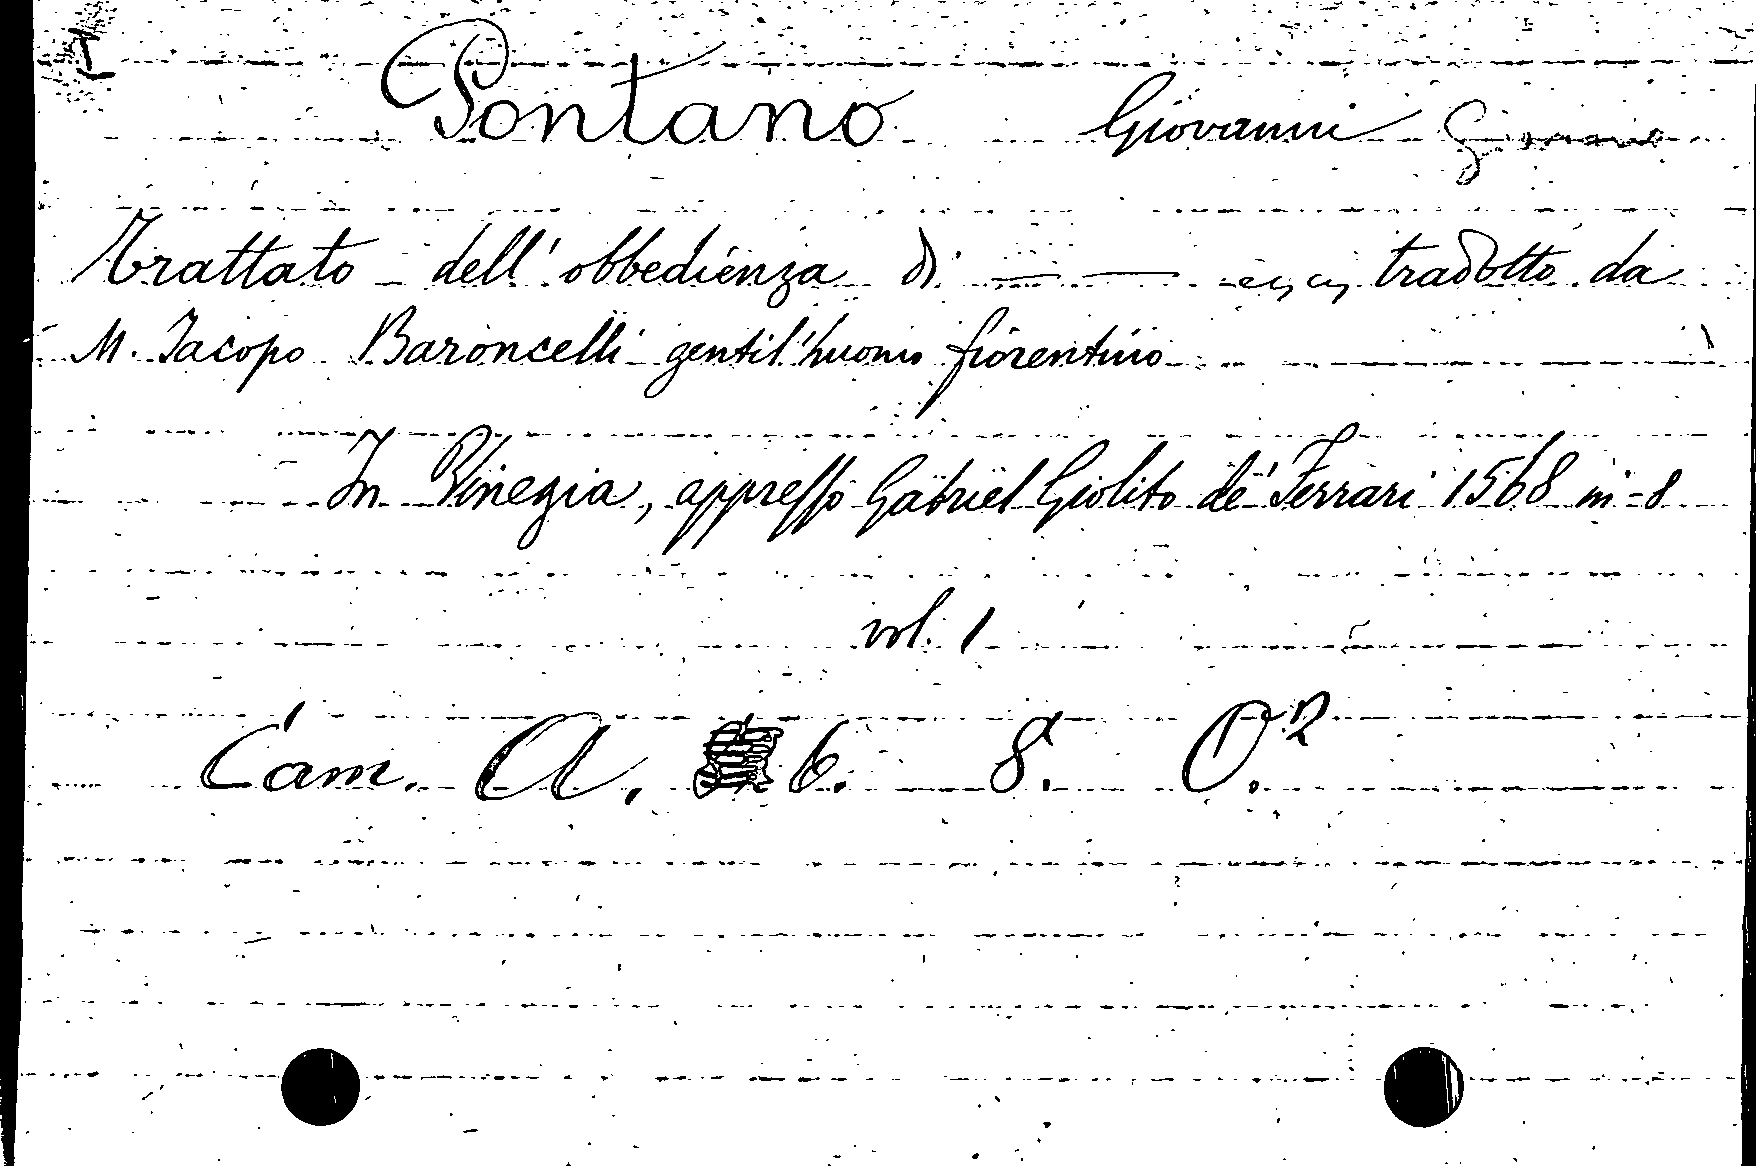 I
Pontano Giovanni
Trattato dell' obbedienza di — — tradotto da
M. Jacopo Baroncelli gentil'huomo fiorentino
In Vinegia, appresso Gabriel Giolito de' Ferrari 1568 in=8
vol. 1
Cam. A. 6. 8. O.2